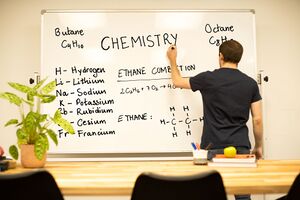 Butane
C₄H₁₀
CHEMISTRY
Octane
C₈H
H - Hydrogen
Li - Lithium
Na - Sodium
K - Potassium
Rb - Rubidium
Cs - Cesium
Fr - Francium
ETHANE COMBUTION
2C₂H₆ + 7O₂ → 4C
ETHANE:
H H
H-C-C-H
H H